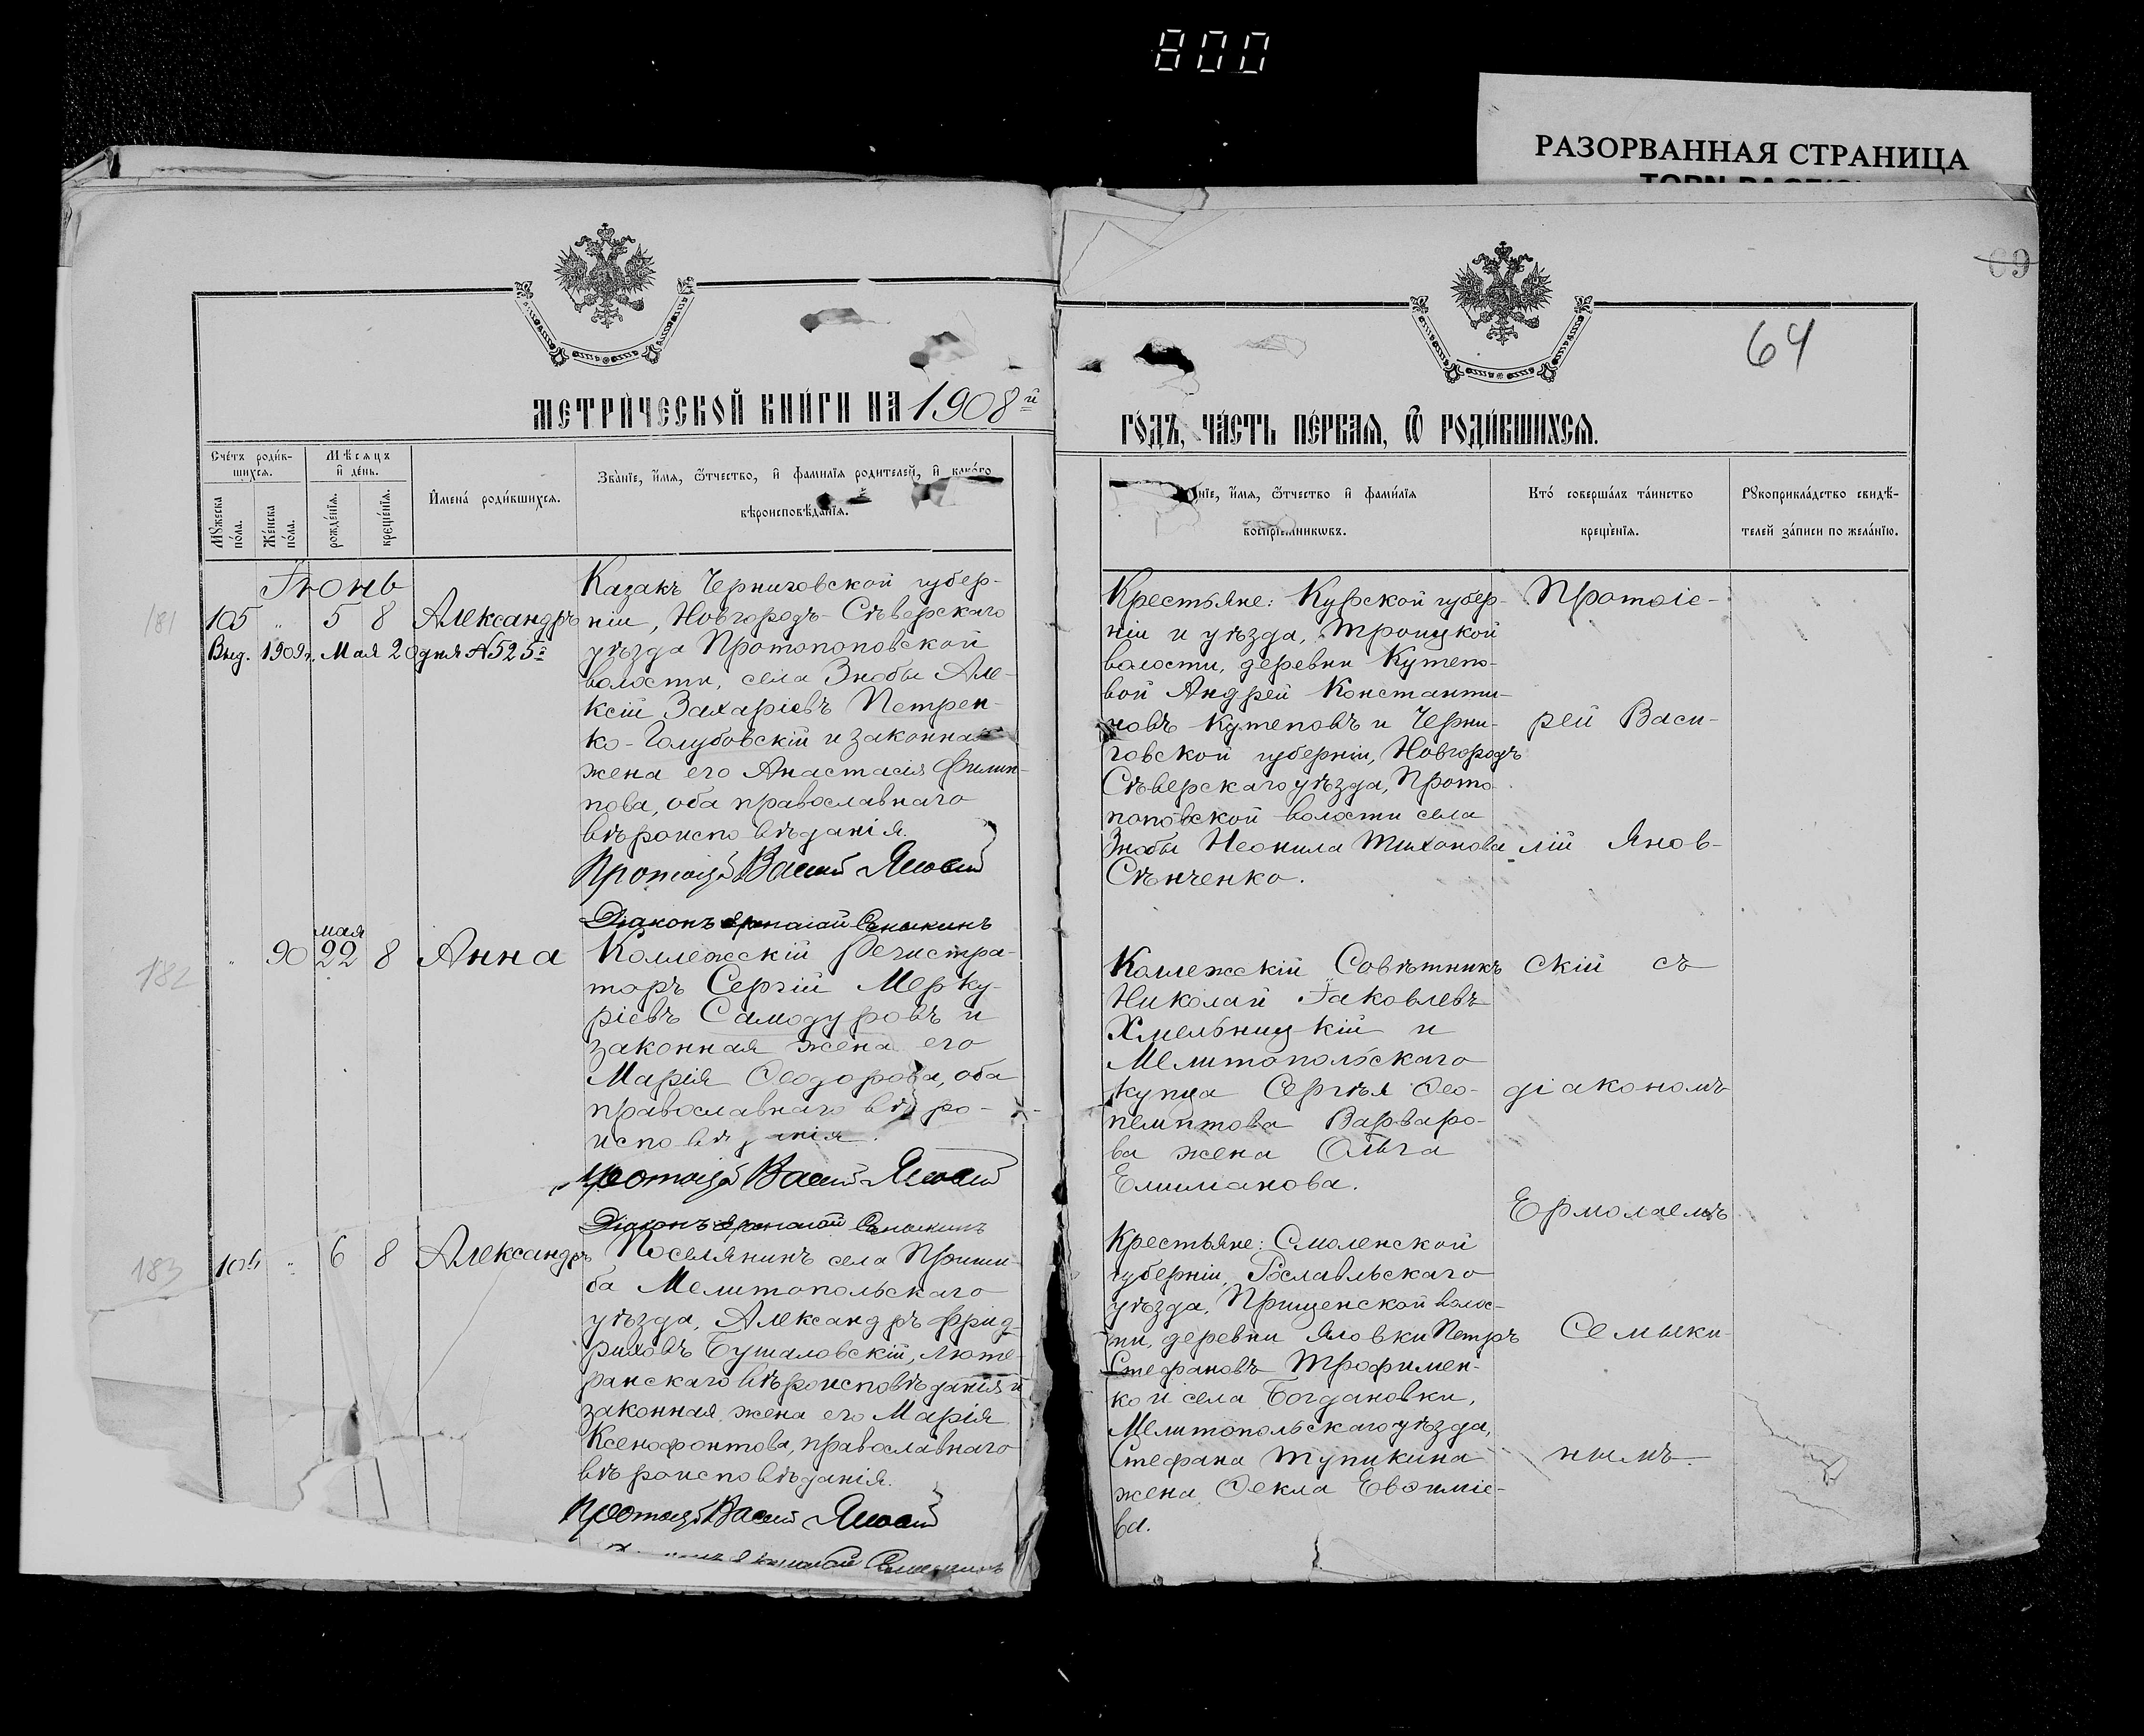 800
РАЗОРВАННАЯ СТРАНИЦА
69
64
МЕТРИЧЕСКОЙ КНИГИ НА 1908й
ГОДЪ, ЧАСТЬ ПЕРВАЯ, Ѿ РОДИВШИХСЯ.
Счетъ родив-
шихся.
Мужеска пола.
Женска пола.
Мѣсяцъ и день.
рожденія.
крещенія.
Имена родившихся.
Званіе, имя, ѿтчество, и фамилія родителей, и какого
вѣроисповѣданія.
имя, ѿтчество и фамилія
воспріемниковъ.
Кто совершалъ таинство
крещенія.
Рукоприкладство свидѣ-
телей записи по желанію.
Іюнь
181
105 " 5 8 Александръ
Выд. 1909г. Мая 20 дня №525
Казакъ Черниговской губер-
ніи, Новгородъ-Сѣверскаго
уѣзда Протопоповской
волости, села Знобы Але-
ксій Захаріевъ Петрен-
ко-Голубовскій и законная
жена его Анастасія Филип-
пова, оба православнаго
вѣроисповѣданія.
Протоіерей Василій Яновскій
Діаконъ Ермолай Семыкинъ
Крестьяне: Курской губер-
ніи и уѣзда, Троицкой
волости, деревни Кутепо-
вой Андрей Константи-
новъ Кутеповъ и Черни-
говской губерніи, Новгородъ
Сѣверскаго уѣзда, Прото-
поповской волости села
Знобы Неонила Тихонова
Сѣнченко.
Протоіе-
рей Васи-
лій Янов-
скій съ
діакономъ
Ермолаемъ
Семыки-
нымъ
182
" 90 мая 22 8 Анна
Коллежскій Регистра-
торъ Сергій Мерку-
ріевъ Самодуровъ и
законная жена его
Марія Ѳеодорова, оба
православнаго вѣро-
исповѣданія.
Протоіерей Василій Яновскій
Діаконъ Ермолай Семыкинъ
Коллежскій Совѣтникъ
Николай Іаковлевъ
Хмельницкій и
Мелитопольскаго
купца Сергѣя Ѳео-
пемптова Варваро-
ва жена Ольга
Емиліанова.
183
106 " 6 8 Александръ
Поселянинъ села Приши-
ба Мелитопольскаго
уѣзда, Александръ Фрид-
риховъ Бушаловскій, люте-
ранскаго вѣроисповѣданія и
законная жена его Марія
Ксенофонтова, православнаго
вѣроисповѣданія.
Протоіерей Василій Яновскій
Семыкинъ
Крестьяне: Смоленской
губерніи, Рославльскаго
уѣзда, Прищенской волос-
ти, деревни Яловки Петръ
Стефановъ Трофимен-
ко и села Богдановки,
Мелитопольскаго уѣзда,
Стефана Тупикина
жена Ѳекла Евѳиміе-
ва.